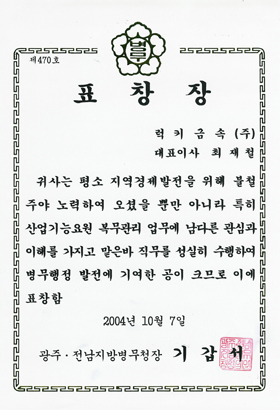 병무
제470호
표창장
럭키금속(주)
대표이사 최재철
귀사는 평소 지역경제발전을 위해 불철
주야 노력하여 오셨을 뿐만 아니라 특히
산업기능요원 복무관리 업무에 남다른 관심과
이해를 가지고 맡은바 직무를 성실히 수행하여
병무행정 발전에 기여한 공이 크므로 이에
표창함
2004년 10월 7일
광주·전남지방병무청장 기갑서